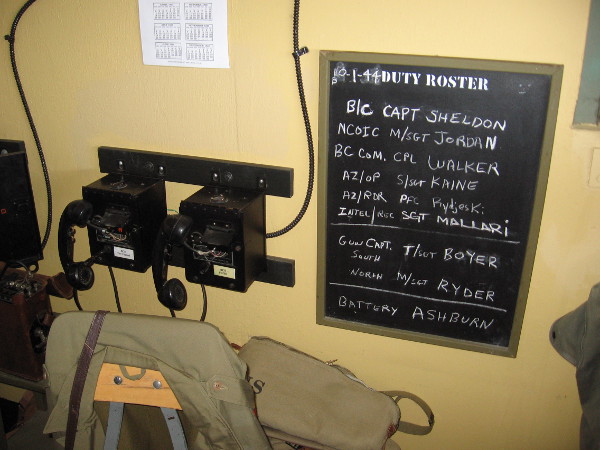 10-1-44 DUTY ROSTER
B/C CAPT SHELDON
NCOIC M/SGT JORDAN
BC COM. CPL WALKER
AZ/OP S/SGT KAINE
AZ/RDR PFC Rydjeski
INTEL/REC SGT MALLARI
GUN CAPT. T/SGT BOYER
SOUTH
NORTH M/SGT RYDER
BATTERY ASHBURN